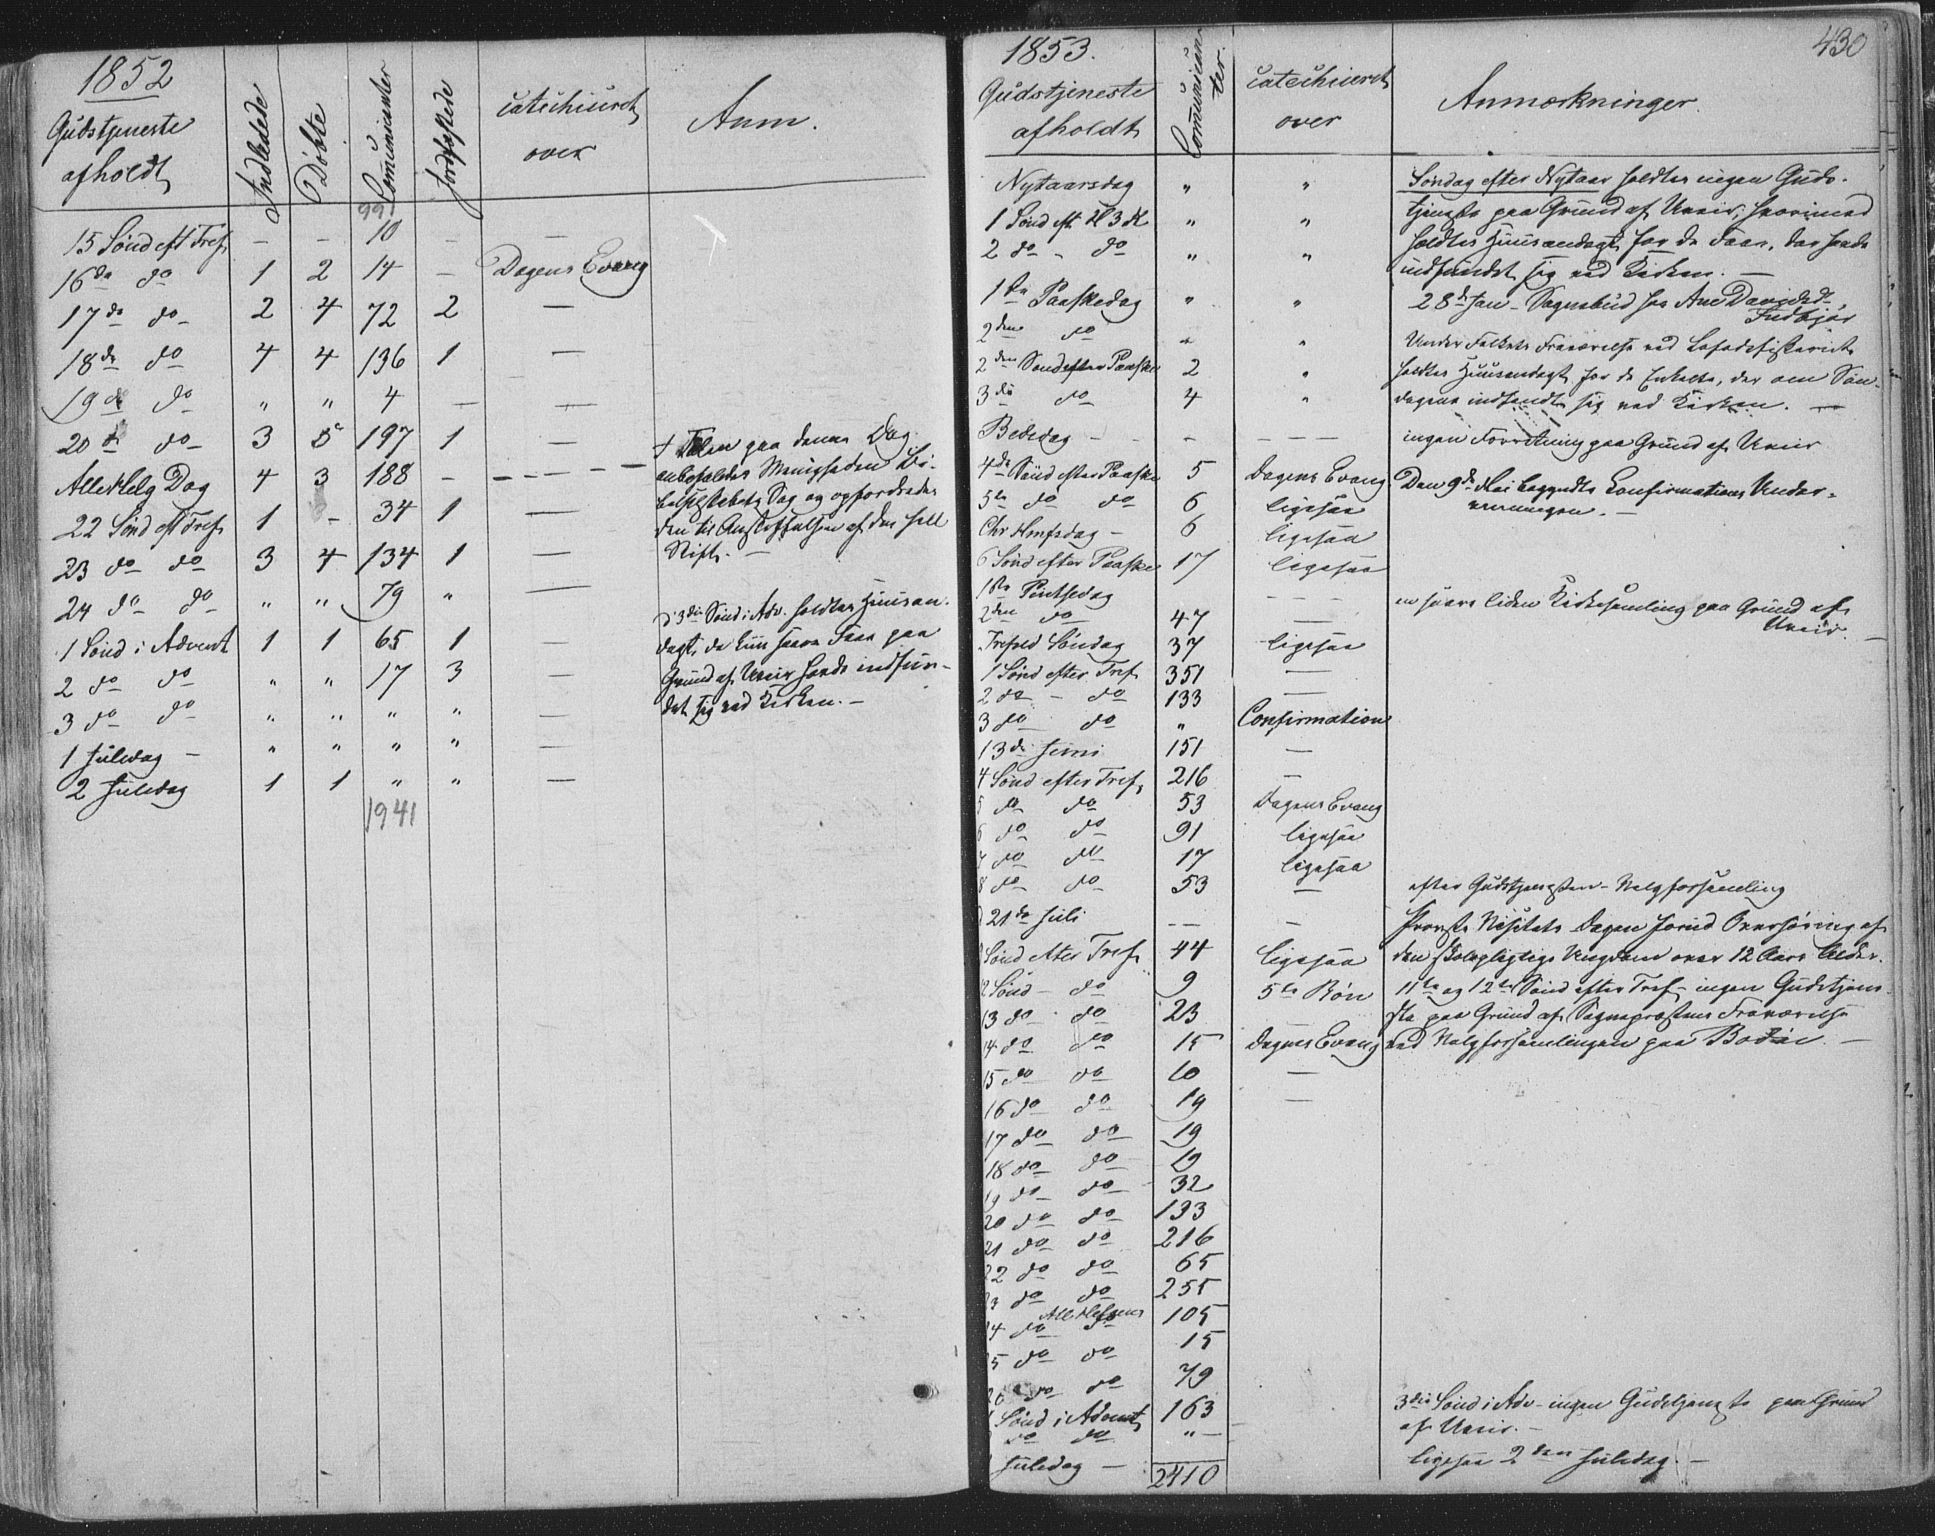 1852
Gudstjeneste afholdt | Indledede | Döbte | Comunicanter | Jordfæstede | Catechiseret over | Anm.
991
15 Sönd eft Tref. – – 10 – –
16de do 1 2 14 – Dagens Evang
17de do 2 4 72 2 —
18de do 4 4 136 1 —
19de do " " 4 — —
20de do 3 5 197 1 —
Alle Helg Dag 4 3 188 – – – –
22 Sönd eft Tref. 1 – 34 1 —
23 do do 3 4 134 1 —
24 do do " " 79 " —
1 Sönd i Advent 1 1 65 1 —
2 do do " " 17 3 —
3 do do " " " " —
1 Juledag – " " " " —
2 Juledag 1 1 " " —
1941
+ Talen paa denne Dag
anbefaledes Menigheden Bi-
belselskabets Sag og opfordredes
den til Anskaffelsen af den hell
Skift. —
3die Sönd i Adv. holdtes Huusan-
dagt, da kun faa
Grund af Uveir havde indfun-
det sig ved Kirken. —
430
1853.
Gudstjeneste afholdt | Comunicanter | Catechiseret over | Anmærkninger.
Nytaarsdag " "
1 Sönd eft. H 3 K " "
2 do - do " "
1ste Paaskedag " "
2den do " "
2den Sönd efter Paaske 2 "
3die do 4 "
Bededag – – – – – –
4de Sönd efter Paaske 5 Dagens Evang
5te do do 6 ligesaa
Chr Hmfsdag – 6 ligesaa
6 Sönd efter Paaske 17 ligesaa
1ste Pintsedag – – –
2den do 47 —
Trefold Söndag 37 ligesaa
1 Sönd efter Tref. 351 —
2 do - do 133 —
3 do do " Confirmation
13de Juni 151 —
4 Sönd efter Tref. 216 —
5 do do 53 Dagens Evang
6 do do 91 ligesaa
7 do do 17 ligesaa
8 do do 53 —
21de Juli — –
Sönd efter Tref. 44 ligesaa
Sönd - do 9 5te Bön
13 do do 23 —
14 do do 15 Dagens Evang
15 do do 10 —
16 do do 19 —
17 do do 19
18 do do 19
19 do do 32
20 do do 133
21 do do 216
22 do do 65
23 do do 255
Alle Helgens 105
24 do do 15
25 do do 79
26 do do
1 Sönd i Advent 163
do do " –
Juledag –
2410
Söndag efter Nytaar holdtes ingen Guds-
tjeneste paa Grund af Uveir, hvorimod
holdtes Huusandagt for de Faa, der havde
indfundet sig ved Kirken. —
28de Jan – Sognebud hos Ane Davidsdr.
Under Folkets Fraværelse ved Lofodfiskeriet
holdtes Huusandagt for de Enkelte, der om Sön-
dagene indfandt sig ved Kirken. —
ingen Forretning paa Grund af Uveir
Den 9de Mai begyndte Confirmations Under-
viisningen. —
en svære liden Kirkesamling paa Grund af
Uveir. —
efter Gudstjenesten – Valgforsamling
Provste Visitats Dagen forud Overhöring af
den skolepligtige Ungdom over 12 Aars Alder.
11te og 12te Sönd efter Tref. ingen Gudstjene-
ste paa Grund af Sognepræstens Fraværelse
ved Valgforsamlingen paa Bodöe. —
3die Sönd i Adv – ingen Gudstjeneste paa Grund
af Uveir. –
ligesaa 2den Juledag. –